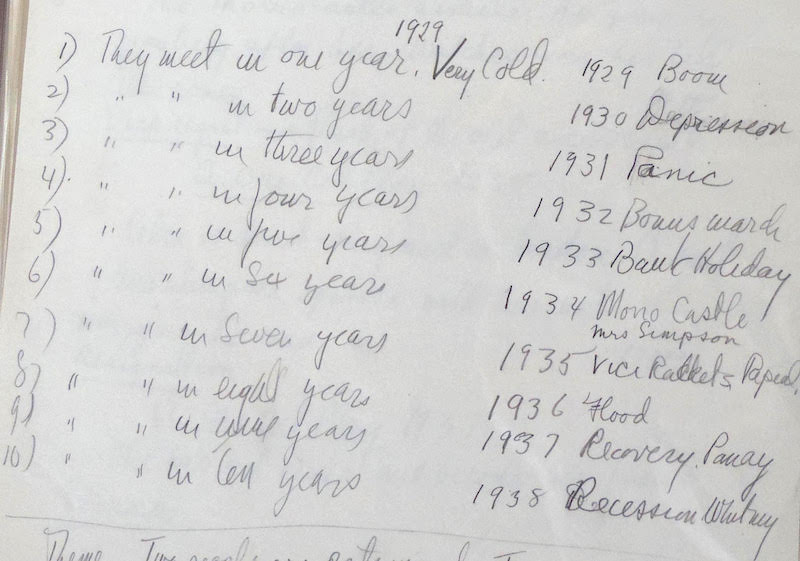 1929
1) They meet in one year. Very Cold. 1929 Boom
2) " " in two years 1930 Depression
3) " " in three years 1931 Panic
4) " " in four years 1932 Bonus march
5) " " in five years 1933 Bank Holiday
6) " " in six years 1934 Moro Castle
Mrs Simpson
7) " " in seven years 1935 Vice Rackets
8) " " in eight years 1936 Flood
9) " " in nine years 1937 Recovery. Panay
10) " " in ten years 1938 Recession Whitney
Theme Two people are